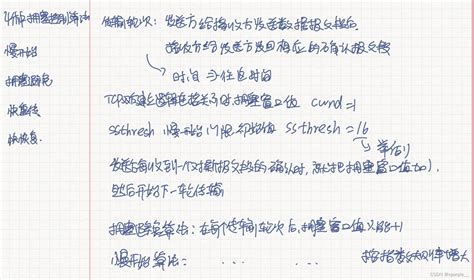 4种拥塞控制算法
慢开始
拥塞避免
快重传
快恢复
传输轮次：发送方给接收方发送数据报文段后，
接收方给发送方发回相应的确认报文段
→时间为往返时间
TCP双方建立逻辑连接关系时，拥塞窗口值 cwnd=1
ssthresh 慢开始门限初始值 ssthresh=16
→举例
发送方每收到一个对新报文段的确认时，就把拥塞窗口值加1，
然后开始下一轮传输
拥塞避免算法：在每个传输轮次后，拥塞窗口值只能+1
慢开始算法： ... ... ... 按指数规律增大